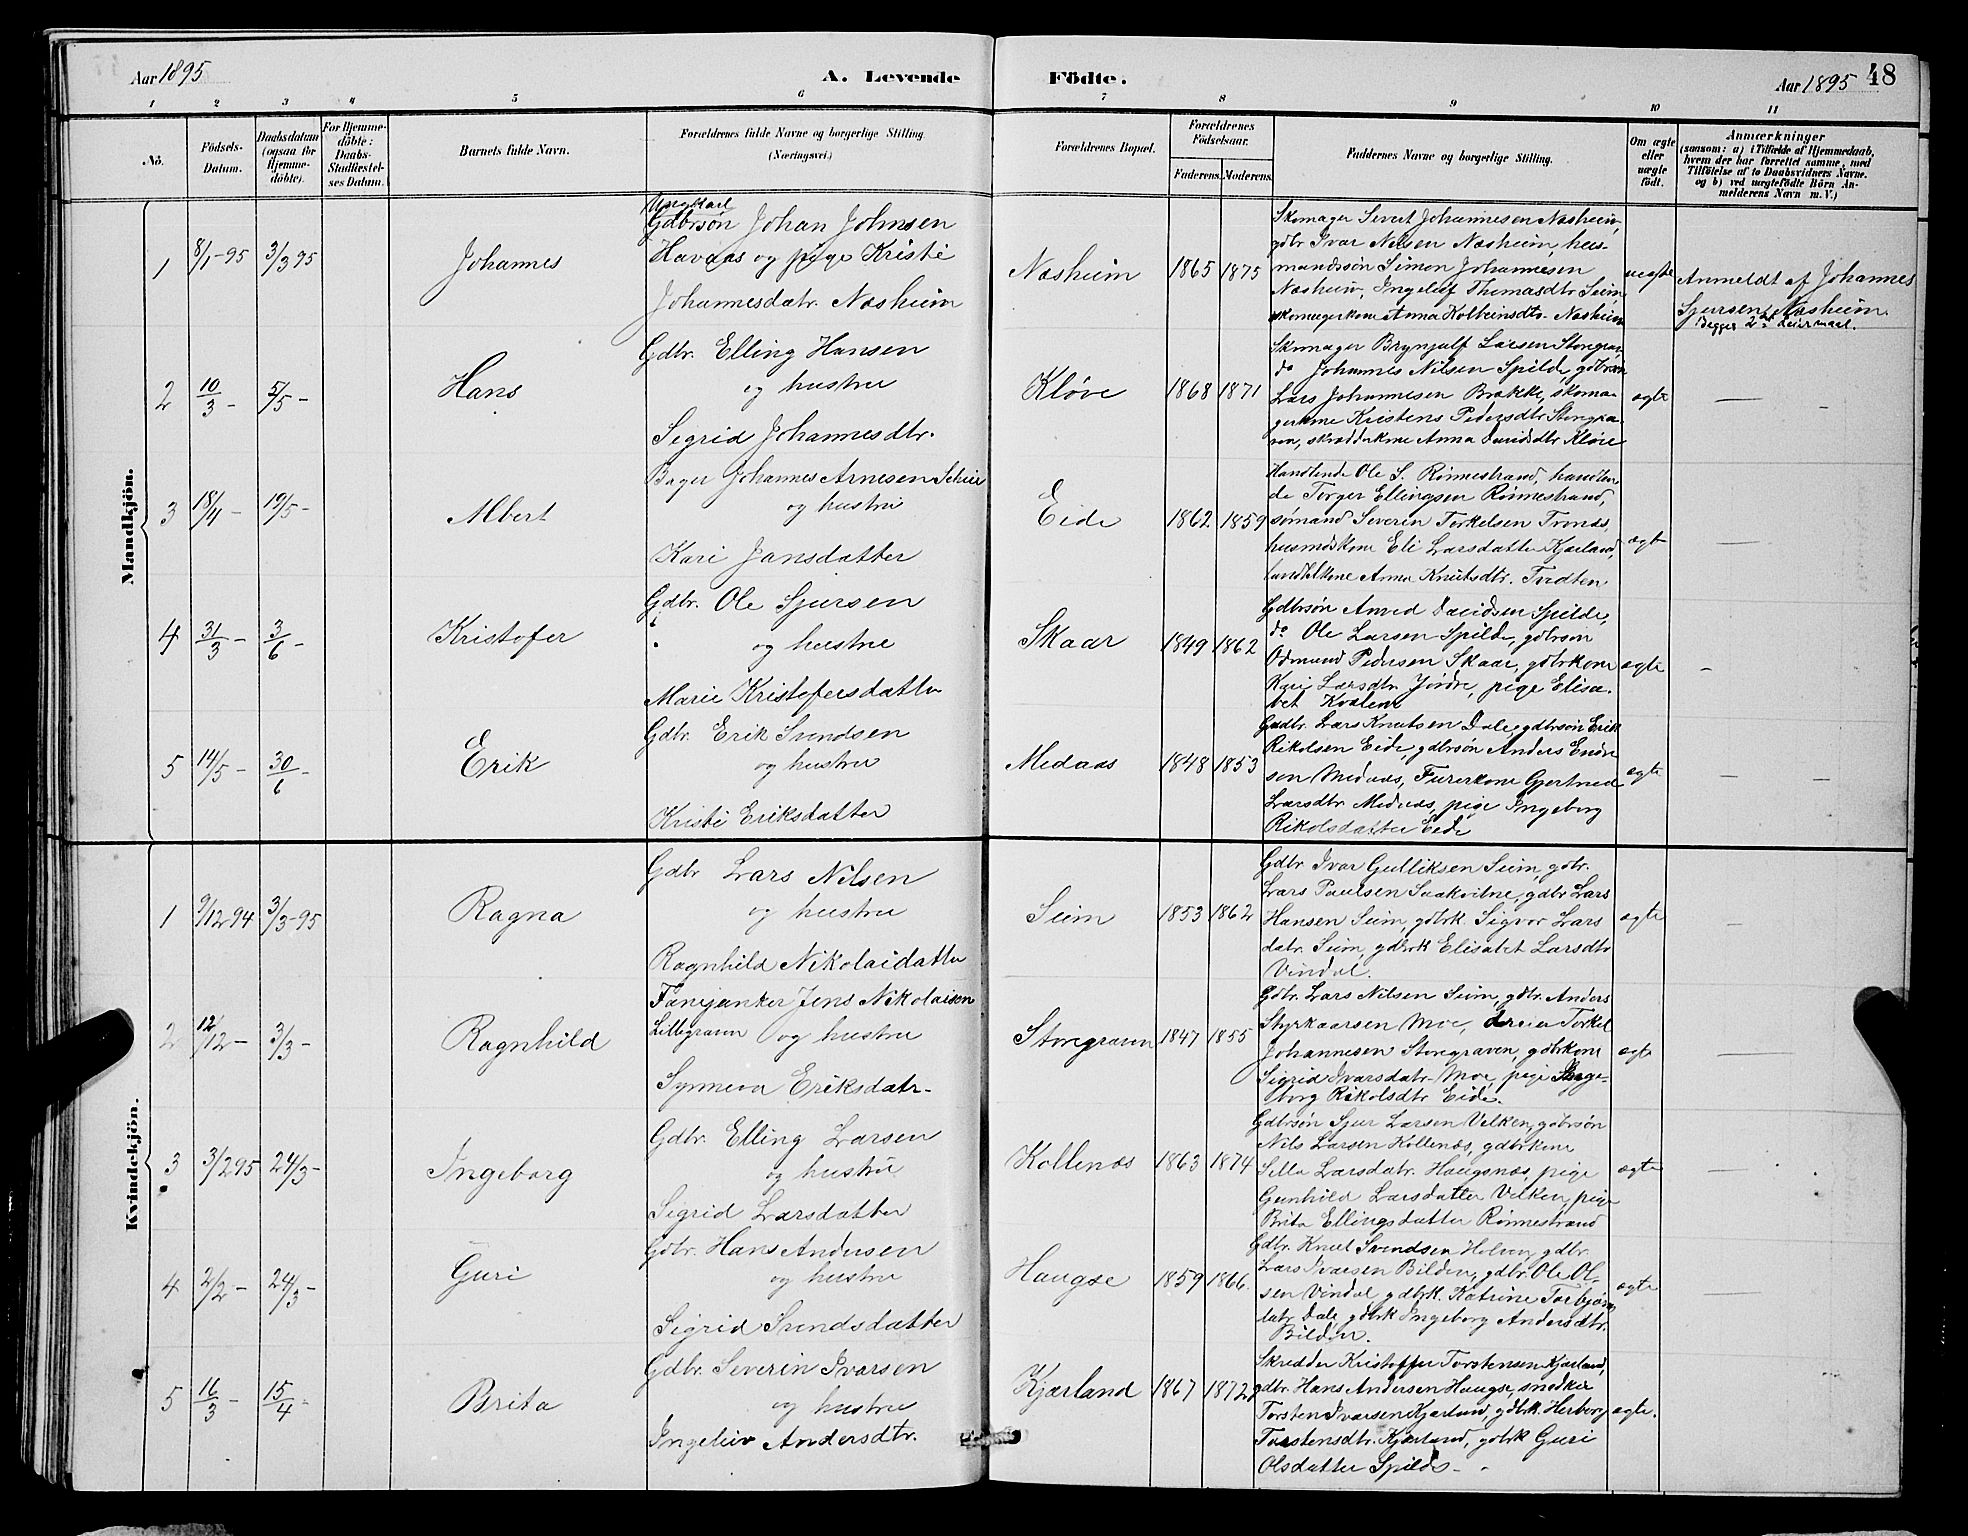 Aar 1895
A. Levende Födte.
Aar 1895
48
1 2 3 4 5 6 7 8 9 10 11
No.
Födsels-
Datum.
Daabsdatum
(ogsaa for
Hjemme-
döbte).
For Hjemme-
döbte:
Daabs-
Stadfæstel-
ses Datum.
Barnets fulde Navn.
Forældrenes fulde Navne og borgerlige Stilling
(Næringsvei.)
Forældrenes Bopæl.
Forældrenes
Födselsaar.
Faderens. Moderens.
Faddernes Navne og borgerlige Stilling.
Om ægte
eller
uægte
födt.
Anmærkninger
(saasom: a) i Tilfælde af Hjemmedaab,
hvem der har forrettet samme, med
Tilföielse af to Daabsvidners Navne.
og b) ved uægtefödte Börn An-
melderens Navn m. V.)
Mandkjön.
1
8/1-95
3/3 95
Johannes
Ungkarl
Gdbrsön Johan Johnsen
Havaas og pige Kristi
Johannesdatr. Næsheim
Næsheim
1865
1875
Skomager Severt Johannesen Næsheim,
gdbr Ivar Nelsen Næsheim, hus-
mandssön Simon Johannesen
Næsheim, Ingelef Thomasdtr Seim
skomagerkone Anna Kolbeinsdtr. Næsheim
uægte
Anmeldt af Johannes
Sjursen Næsheim.
Begges 2det Leiermaal.
2
10/3 -
5/5 -
Hans
Gdbr. Elling Hansen
og hustru
Sigrid Johannesdtr.
Kløve
1868
1871
Skomager Brynjulf Larsen Storgra-
do Johannes Nilsen Spilde, gdbrsön
Lars Johannesen Brække, skoma-
gerkone Kristens Pedersdtr Storgra-
ven, skrædderkone Anna Davidsdtr Kløve
ægte
3
18/4 -
19/5 -
Albert
Bager Johannes Arnesen Seheim
og hustru
Kari Jansdatter
Eide
1862
1859
Handlende Ole S. Rönnestrand, handlen
de Torger Ellingsen Rönnestrand,
sömand Severin Torkelsen Trones,
husmdskone Eli Larsdatter Kjærland,
landhdkone Anna Knutsdtr. Tvedten
ægte
4
31/3 -
3/6 -
Kristofer
Gdbr. Ole Sjursen
og hustru
Marie Kristofersdatter
Skaar
1849
1862
Gdbrsön Amed Davidsen Spilde,
do Ole Larsen Spilde, gdbrson
Odmund Pedersen Skaar, gdbrkone
Kari Larsdtr Jördre, pige Elisa-
bet Kvalen
ægte
5
14/5 -
30/6 -
Erik
Gdbr. Erik Svendsen
og hustru
Kristi Eriksdatter
Medaas
1848
1853
Gadbr. Lars Knutsen Dale, gdbrsön Erik
Rikolsen Eide, gdbrsön Anders Endre
sen Medaas, Furerkone Gjertrud
Larsdtr Medaas, pige Ingeborg
Rikolsdatter Eide
ægte
Kvindekjön.
1
9/12 94
3/3-95
Ragna
Gdbr Lars Nilsen
og hustru
Ragnhild Nikolaidatter
Seim
1853
1862
Gdbr Ivar Gulliksen Seim, gdbr.
Lars Paulsen Saakvitne, gdbr Lars
Hansen Seim, gdbrk. Sigvor Lars
datr. Seim, gdbrk Elisabet Larsdtr
Vindal.
ægte
2
12/12 -
3/3 -
Ragnhild
Fanejunker Jens Nikolaisen
Lillegraven og hustru
Synneva Eriksdatr.
Storegraven
1847
1855
Gdbr. Lars Nilsen Seim, gdbr. Anders
Styrkaarsen Moe, dreier Torkel
Johannesen Storegraven, gdbrkone
Sigrid Ivarsdatr. Moe, pige Inge-
borg Rikolsdtr Eide.
ægte
3
3/2 95
24/3 -
Ingeborg
Gdbr. Elling Larsen
og hustru
Sigrid Larsdatter
Kollenæs
1863
1874
Gdbrsön Sjur Larsen Velken, gdbrsön
Nils Larsen Kollenæs, gdbrkone
Sella Larsdatr. Haugsnæs, pige
Gunhild Larsdatter Velken, pige
Brita Ellingsdatter Rönnestrand
ægte
4
2/2 -
24/3 -
Guri
Gdbr. Hans Andersen
og hustru
Sigrid Svendsdatter
Haugse
1859
1866.
Gdbr. Knut Svendsen Holven, gdbr.
Lars Ivarsen Bilden, gdbr. Ole Ol-
sen Vindal gdbrk. Katrine Torbjörns
datr Dale, gdbrk Ingeborg Andersdtr.
Bilden.
ægte
5
16/3 -
15/4 -
Brita
Gdbr. Severin Ivarsen
og hustru
Ingeleiv Andersdtr.
Kjærland
1867
1872
Skredder Kristoffer Torstensen Kjærland,
gdbr. Hans Andersen Haugse, snedker
Torsten Ivarsen Kjærland, gdbrk. Herborg
Torstensdtr. Kjærland, gdbrk Guri
Olsdatter Spilde -
ægte.